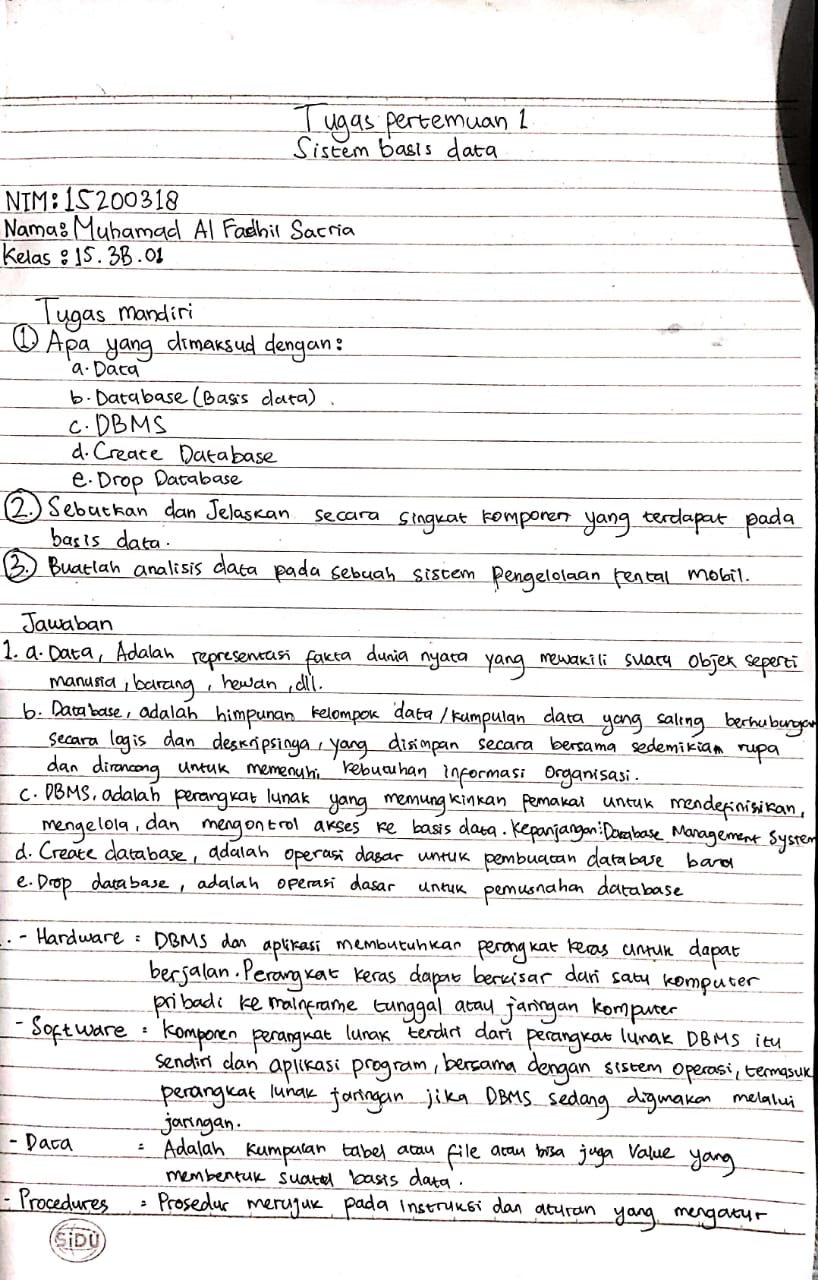 Tugas pertemuan 1
Sistem basis data
NIM: 15200318
Nama: Muhamad Al Fadhil Satria
Kelas : 15.3B.01
Tugas mandiri
① Apa yang dimaksud dengan:
a. Data
b. Database (Basis data).
c. DBMS
d. Create Database
e. Drop Database
②. Sebutkan dan Jelaskan secara singkat komponen yang terdapat pada
basis data.
③. Buatlah analisis data pada sebuah sistem Pengelolaan rental mobil.
Jawaban
1. a. Data, Adalah representasi fakta dunia nyata yang mewakili suatu objek seperti
manusia, barang, hewan, dll.
b. Database, adalah himpunan kelompok data/kumpulan data yang saling berhubungan
secara logis dan deskripsinya, yang disimpan secara bersama sedemikian rupa
dan dirancang untuk memenuhi kebutuhan informasi organisasi.
c. DBMS, adalah perangkat lunak yang memungkinkan pemakai untuk mendefinisikan,
mengelola, dan mengontrol akses ke basis data. Kepanjangan: Database Management System
d. Create database, adalah operasi dasar untuk pembuatan database baru
e. Drop database, adalah operasi dasar untuk pemusnahan database
. - Hardware = DBMS dan aplikasi membutuhkan perangkat keras untuk dapat
berjalan. Perangkat keras dapat berkisar dari satu komputer
pribadi ke mainframe tunggal atau jaringan komputer
- Software = Komponen perangkat lunak terdiri dari perangkat lunak DBMS itu
sendiri dan aplikasi program, bersama dengan sistem operasi, termasuk
perangkat lunak jaringan jika DBMS sedang digunakan melalui
jaringan.
- Data = Adalah kumpulan tabel atau file atau bisa juga Value yang
membentuk suatu basis data.
- Procedures = Prosedur merujuk pada Instruksi dan aturan yang mengatur
SiDU